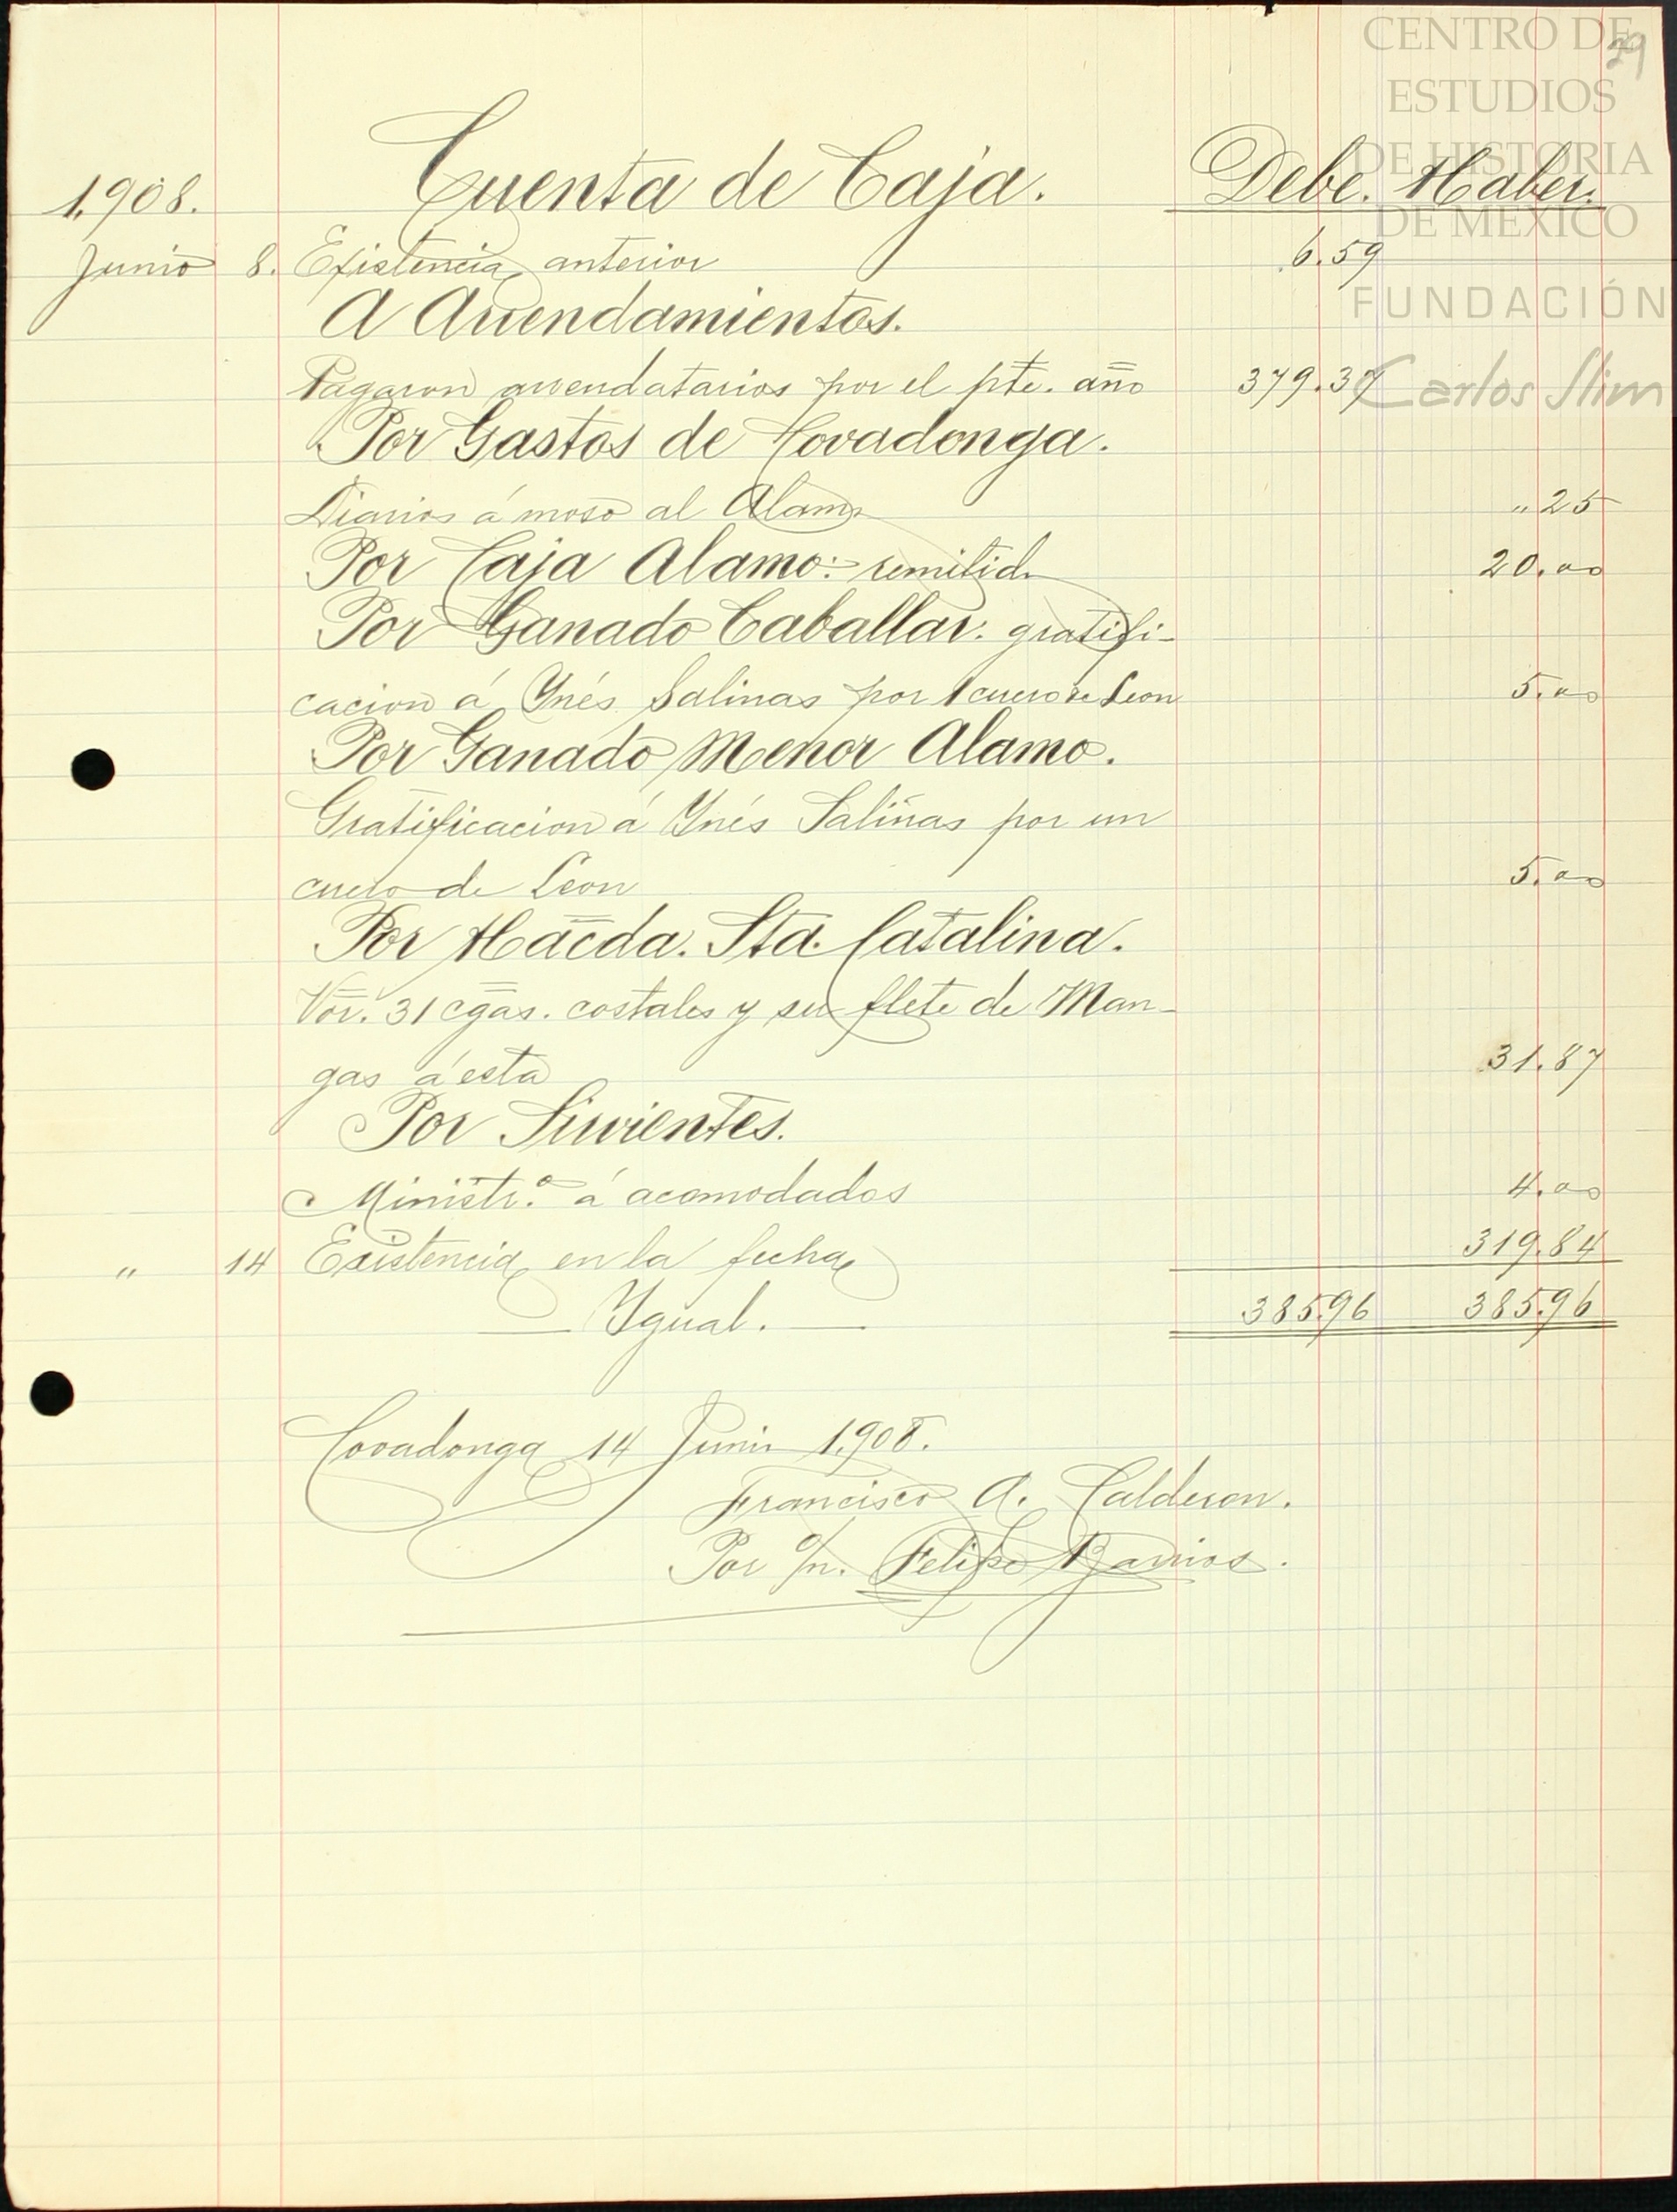 CENTRO DE
ESTUDIOS
DE HISTORIA
DE MEXICO
FUNDACIÓN
Carlos Slim
29
1,908. Cuenta de Caja. Debe. Haber.
Junio 8. Existencia anterior 6.59
A Arrendamientos.
Pagaron arrendatarios por el pte. año 379.37
Por Gastos de Covadonga.
Diarios á moso al Alamo „ 25
Por Caja Alamo: remitido 20.00
Por Ganado Caballar: gratifi-
cacion á Ynés Salinas por 1 cuero de Leon 5.00
Por Ganado Menor Alamo.
Gratificacion á Ynés Salinas por un
cuero de Leon 5.00
Por Hacda. Sta. Catalina.
Vor. 31 cgas. costales y su flete de Man-
gas á esta 31.87
Por Sirvientes.
Ministr.º á acomodados 4.00
„ 14 Existencia en la fecha 319.84
Ygual. 385.96 385.96
Covadonga 14 Junio 1,908.
Francisco A. Calderon.
Por o/n. Felipe Barrios.